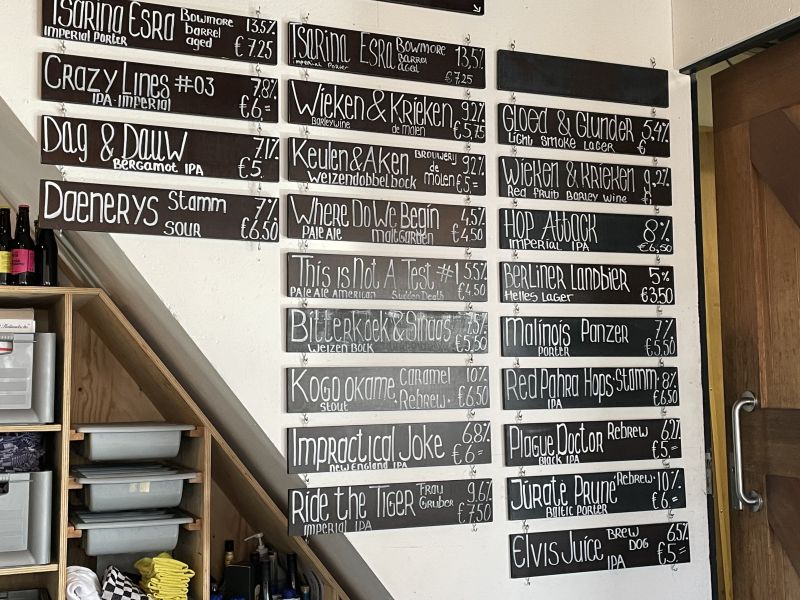 Tsarina Esra Bowmore barrel aged 13.5%
Imperial Porter €7.25
Crazy Lines #03 7,8%
IPA-Imperial €6=
Dag & Dauw 7,1%
Bergamot IPA €5
Daenerys Stamm 7%
Sour €6,50
Tsarina Esra Bowmore Barrel aged 13,5%
Imperial Porter €7.25
Wieken & Krieken 9.2%
Barleywine de Molen €5,75
Keulen & Aken Brouwerij de Molen 9.2%
Weizendobbelbock €5=
Where Do We Begin 4,5%
Pale Ale Maltgarden €4,50
This is Not A Test #1 5.5%
Pale Ale American Sudden Death €4.50
Bitterkoek & Snaps 7.5%
Weizen Bock €5,50
Kogo okame Caramel Rebrew 10%
Stout €6,50
Impractical Joke 6.8%
New England IPA €6=
Ride the Tiger Frau Gruber 9,6%
Imperial IPA €7,50
Gloed & Glunder 5.4%
Light Smoke Lager €
Wieken & Krieken 9,2%
Red Fruit Barley Wine €
Hop Attack 8%
Imperial IPA €6,50
Berliner Landbier 5%
Helles Lager €3.50
Malinois Panzer 7%
Porter €5,50
Red Pahra Hops Stamm 8%
IPA €6,50
Plague Doctor Rebrew 6.2%
Black IPA €5=
Jūratė Prunė Rebrew 10%
Baltic Porter €6=
Elvis Juice Brew Dog 6.5%
IPA €5=